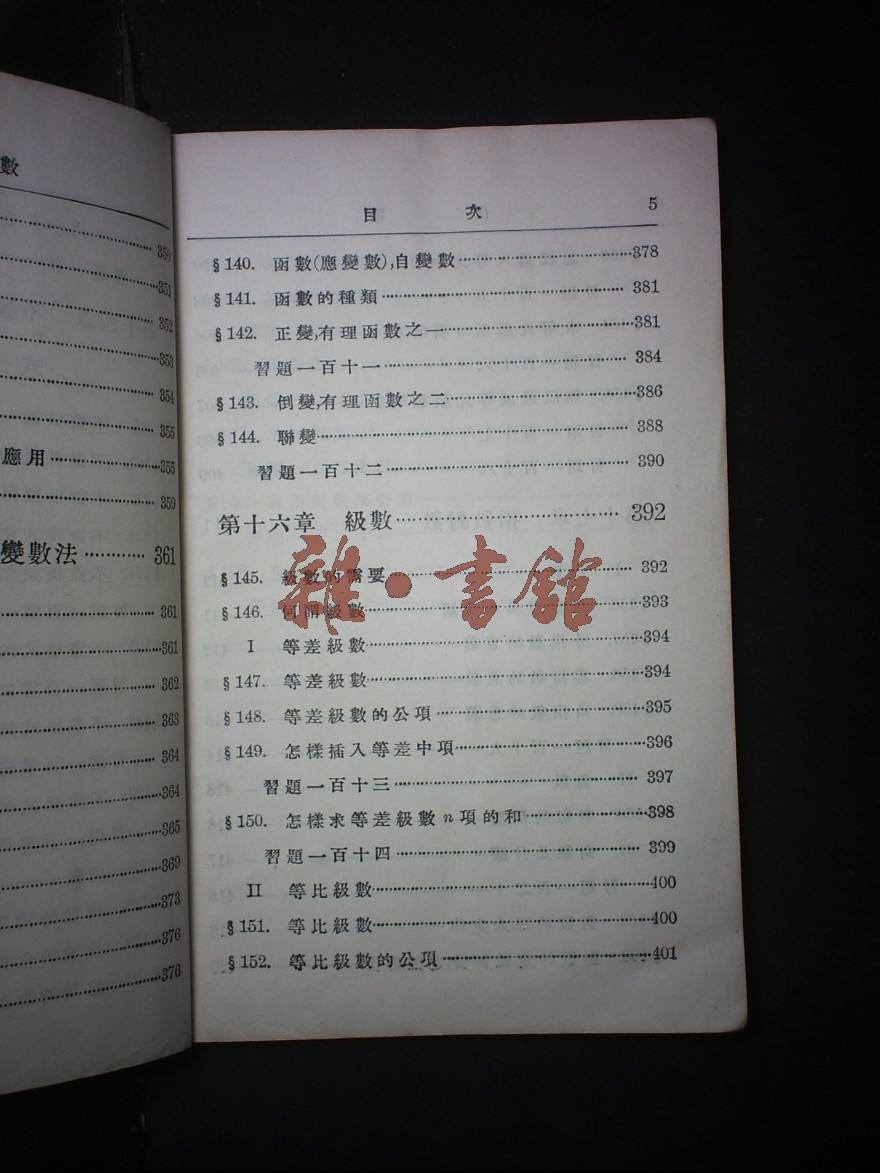 數
350
351
352
353
354
355
應用……355
359
變數法……361
361
361
362
363
364
364
365
369
373
376
376
目 次 5
§140. 函數(應變數),自變數……378
§141. 函數的種類……381
§142. 正變,有理函數之一……381
習題一百十一……384
§143. 倒變,有理函數之二……386
§144. 聯變……388
習題一百十二……390
第十六章 級數……392
§145. 級數的需要……392
§146. 何謂級數……393
I 等差級數……394
§147. 等差級數……394
§148. 等差級數的公項……395
§149. 怎樣插入等差中項……396
習題一百十三……397
§150. 怎樣求等差級數n項的和……398
習題一百十四……399
II 等比級數……400
§151. 等比級數……400
§152. 等比級數的公項……401
雜·書館